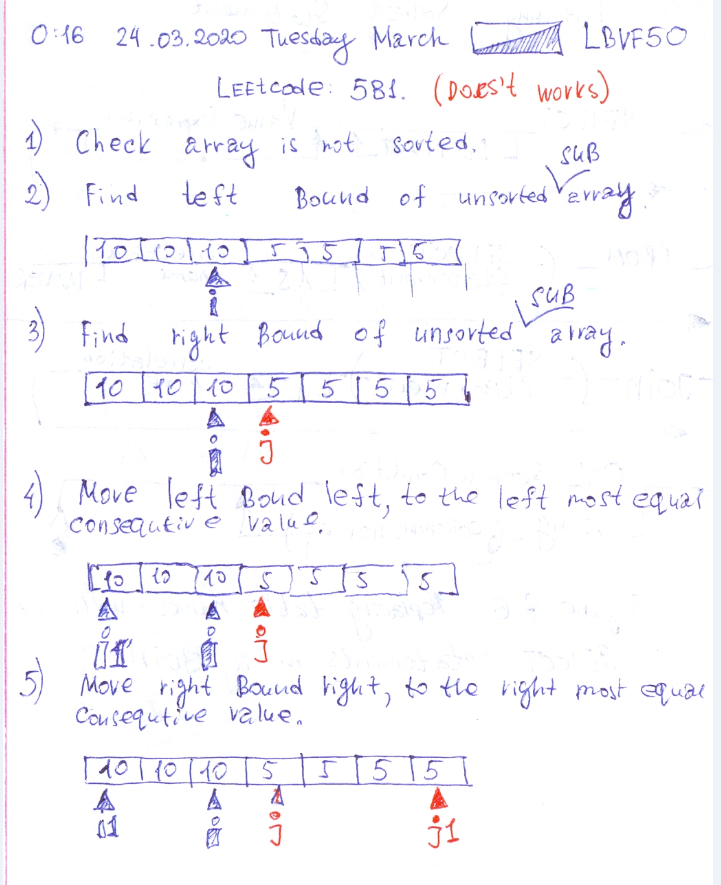 0:16 24.03.2020 Tuesday March LBVF50
LEEtcode: 581. (Does't works)
1) Check array is not sorted.
SUB
2) Find left Bound of unsorted array.
10 10 10 5 5 5 5
i
SUB
3) Find right Bound of unsorted array.
10 10 10 5 5 5 5
i j
4) Move left Boud left, to the left most equal
consequtive value.
10 10 10 5 5 5 5
i1 i j
5) Move right Bound right, to the right most equal
Consequtive value.
10 10 10 5 5 5 5
i1 i j j1